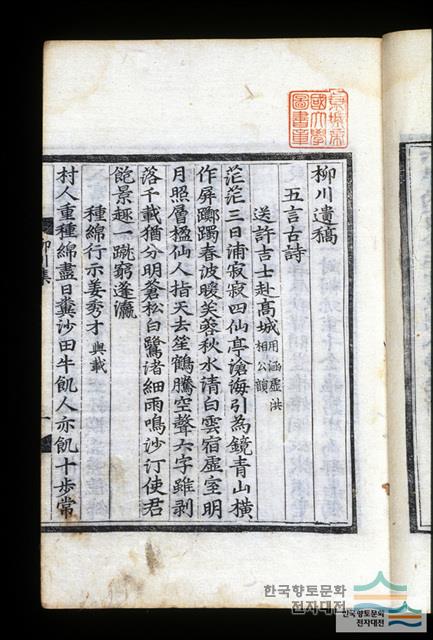 柳川遺稿
五言古詩
送許吉士赴高城用涵虛洪相公韻
茫茫三日浦寂寂四仙亭滄海引為鏡青山橫
作屏躑躅春波暖芙蓉秋水清白雲宿虛室明
月照層楹仙人指天去笙鶴騰空聲六字雖剥
落千載猶分明蒼松白鷺渚細雨鳴沙汀使君
饒景趣一蹴窮蓬瀛
種綿行示姜秀才與載
村人重種綿盡日糞沙田牛飢人亦飢十步常
柳川集
一
京城帝
國大學
圖書章
한국향토문화
전자대전
한국향토문화
전자대전